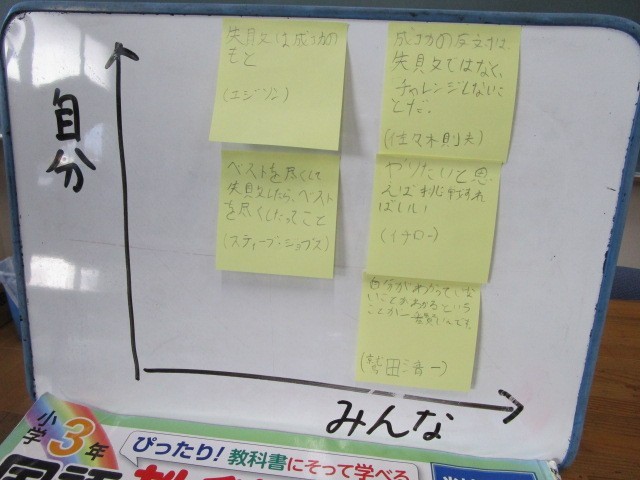 自分
失敗は成功の
もと
(エジソン)
成功の反対は、
失敗ではなく、
チャレンジしないこ
とだ。
(佐々木則夫)
ベストを尽くして
失敗したら、ベスト
を尽くしたってこと
(スティーブ・ジョブズ)
やりたいと思
えば挑戦すれ
ばいい
(イチロー)
自分がわかっていな
いことがわかるという
ことが一番賢いんです。
(鷲田清一)
みんな
小学3年
ぴったり!教科書にそって学べる
国語